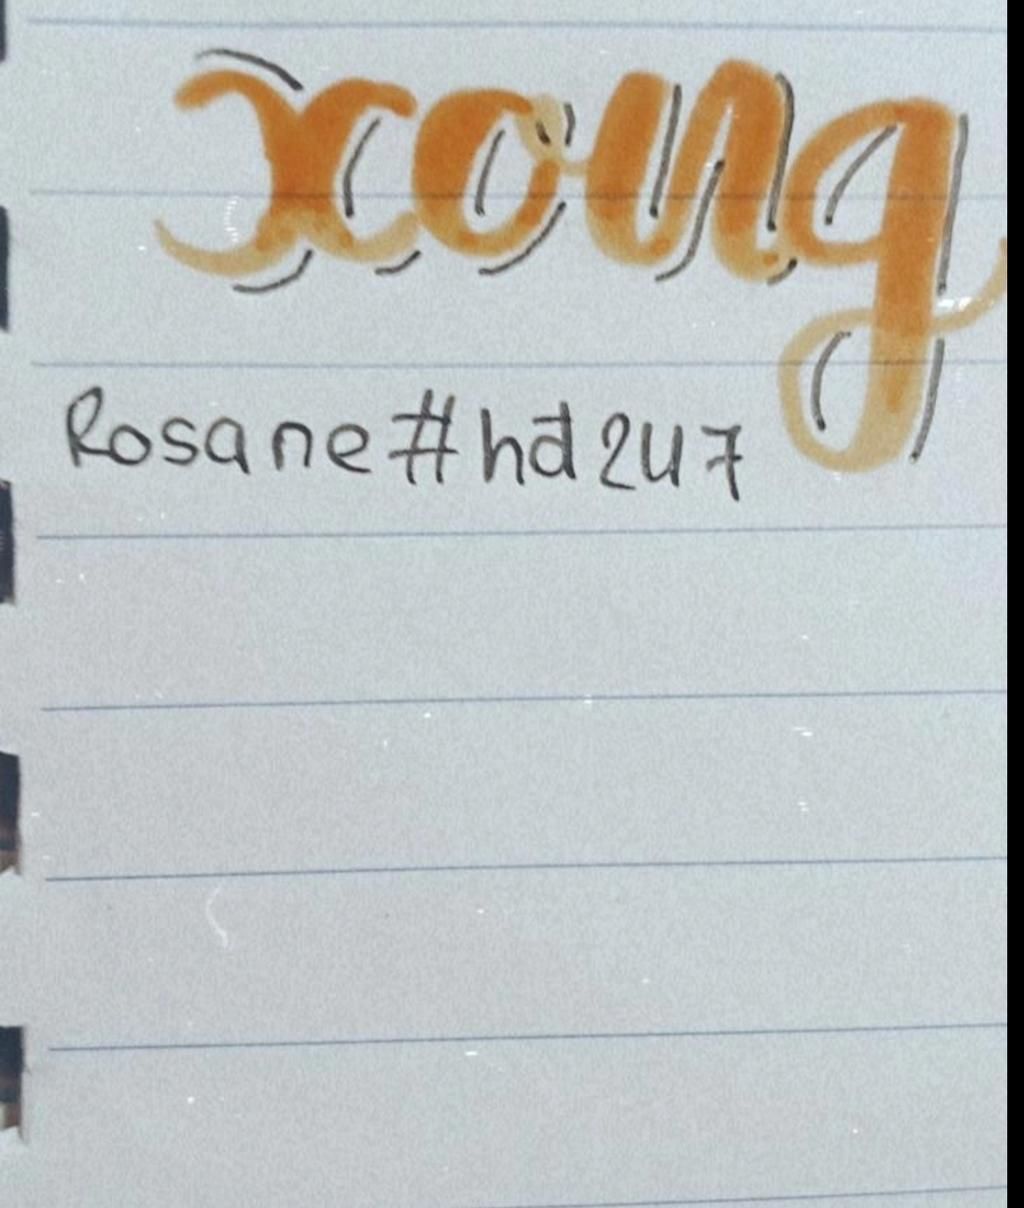 xong
Rosane#hđ247